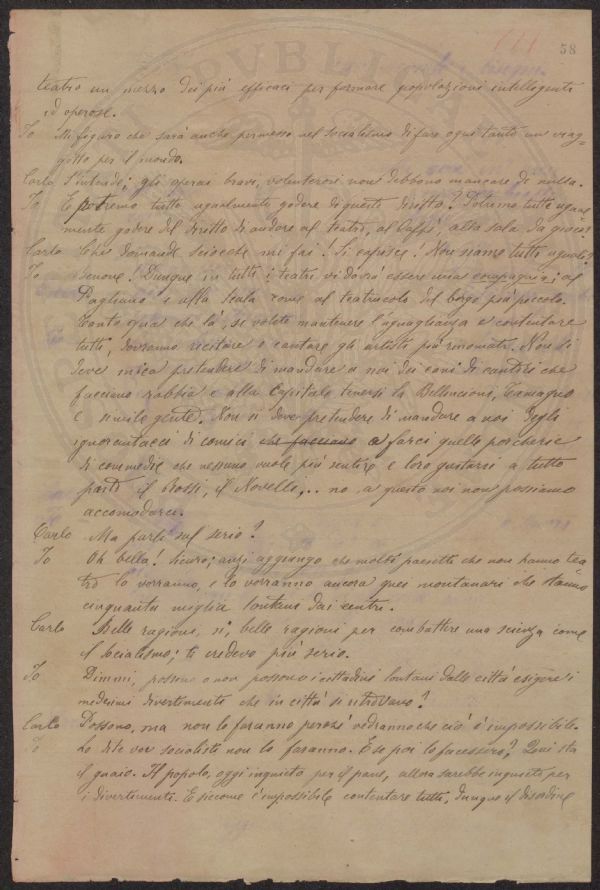 58
teatro un mezzo dei più efficaci per formare popolazioni intelligenti
ed operose.
Io Mi figuro che sarà anche permesso nel socialismo di fare ogni tanto un viag-
getto per il mondo.
Carlo S'intende; gli operai bravi, volenterosi non debbono mancare di nulla.
Io E potremo tutti ugualmente godere di questi diritti? Potremo tutti ugual-
mente godere del diritto di andare al teatro, al Caffè, alla sala da gioco?
Carlo Che domande sciocche mi fai! Si capisce! Non siamo tutti uguali?
Io Benone! Dunque in tutti i teatri vi dovrà essere una compagnia; al
Pagliano e alla Scala come al teatrucolo del borgo più piccolo.
Tanto qua che là, se volete mantenere l'uguaglianza e contentare
tutti, dovranno recitare o cantare gli artisti più rinomati. Non si
deve mica pretendere di mandare a noi dei cani di cantori che
facciano rabbia e alla Capitale tenersi la Bellincioni, Tamagno
e simile gente. Non si deve pretendere di mandare a noi degli
ignorantacci di comici che facciano a farci quelle porcherie
di commedie che nessuno vuole più sentire e loro gustarsi a tutto
pasto il Rossi, il Novelli,.. no, a questo noi non possiamo
accomodarci.
Carlo Ma parli sul serio?
Io Oh bella! sicuro; anzi aggiungo che molti paesetti che non hanno tea-
tro lo vorranno, e lo vorranno ancora quei montanari che stanno
cinquanta miglia lontano dai centri.
Carlo Belle ragioni, sì, belle ragioni per combattere una scienza come
il socialismo; ti credevo più serio.
Io Dimmi, possono o non possono i cittadini lontani dalle città esigere i
medesimi divertimenti che in città si ritrovano?
Carlo Possono, ma non lo faranno perché vedranno che ciò è impossibile.
Io Lo dite voi socialisti non lo faranno. E se poi lo facessero? Qui sta
il guaio. Il popolo, oggi inquieto per il pane, allora sarebbe inquieto per
i divertimenti. E siccome è impossibile contentare tutti, dunque il disordine